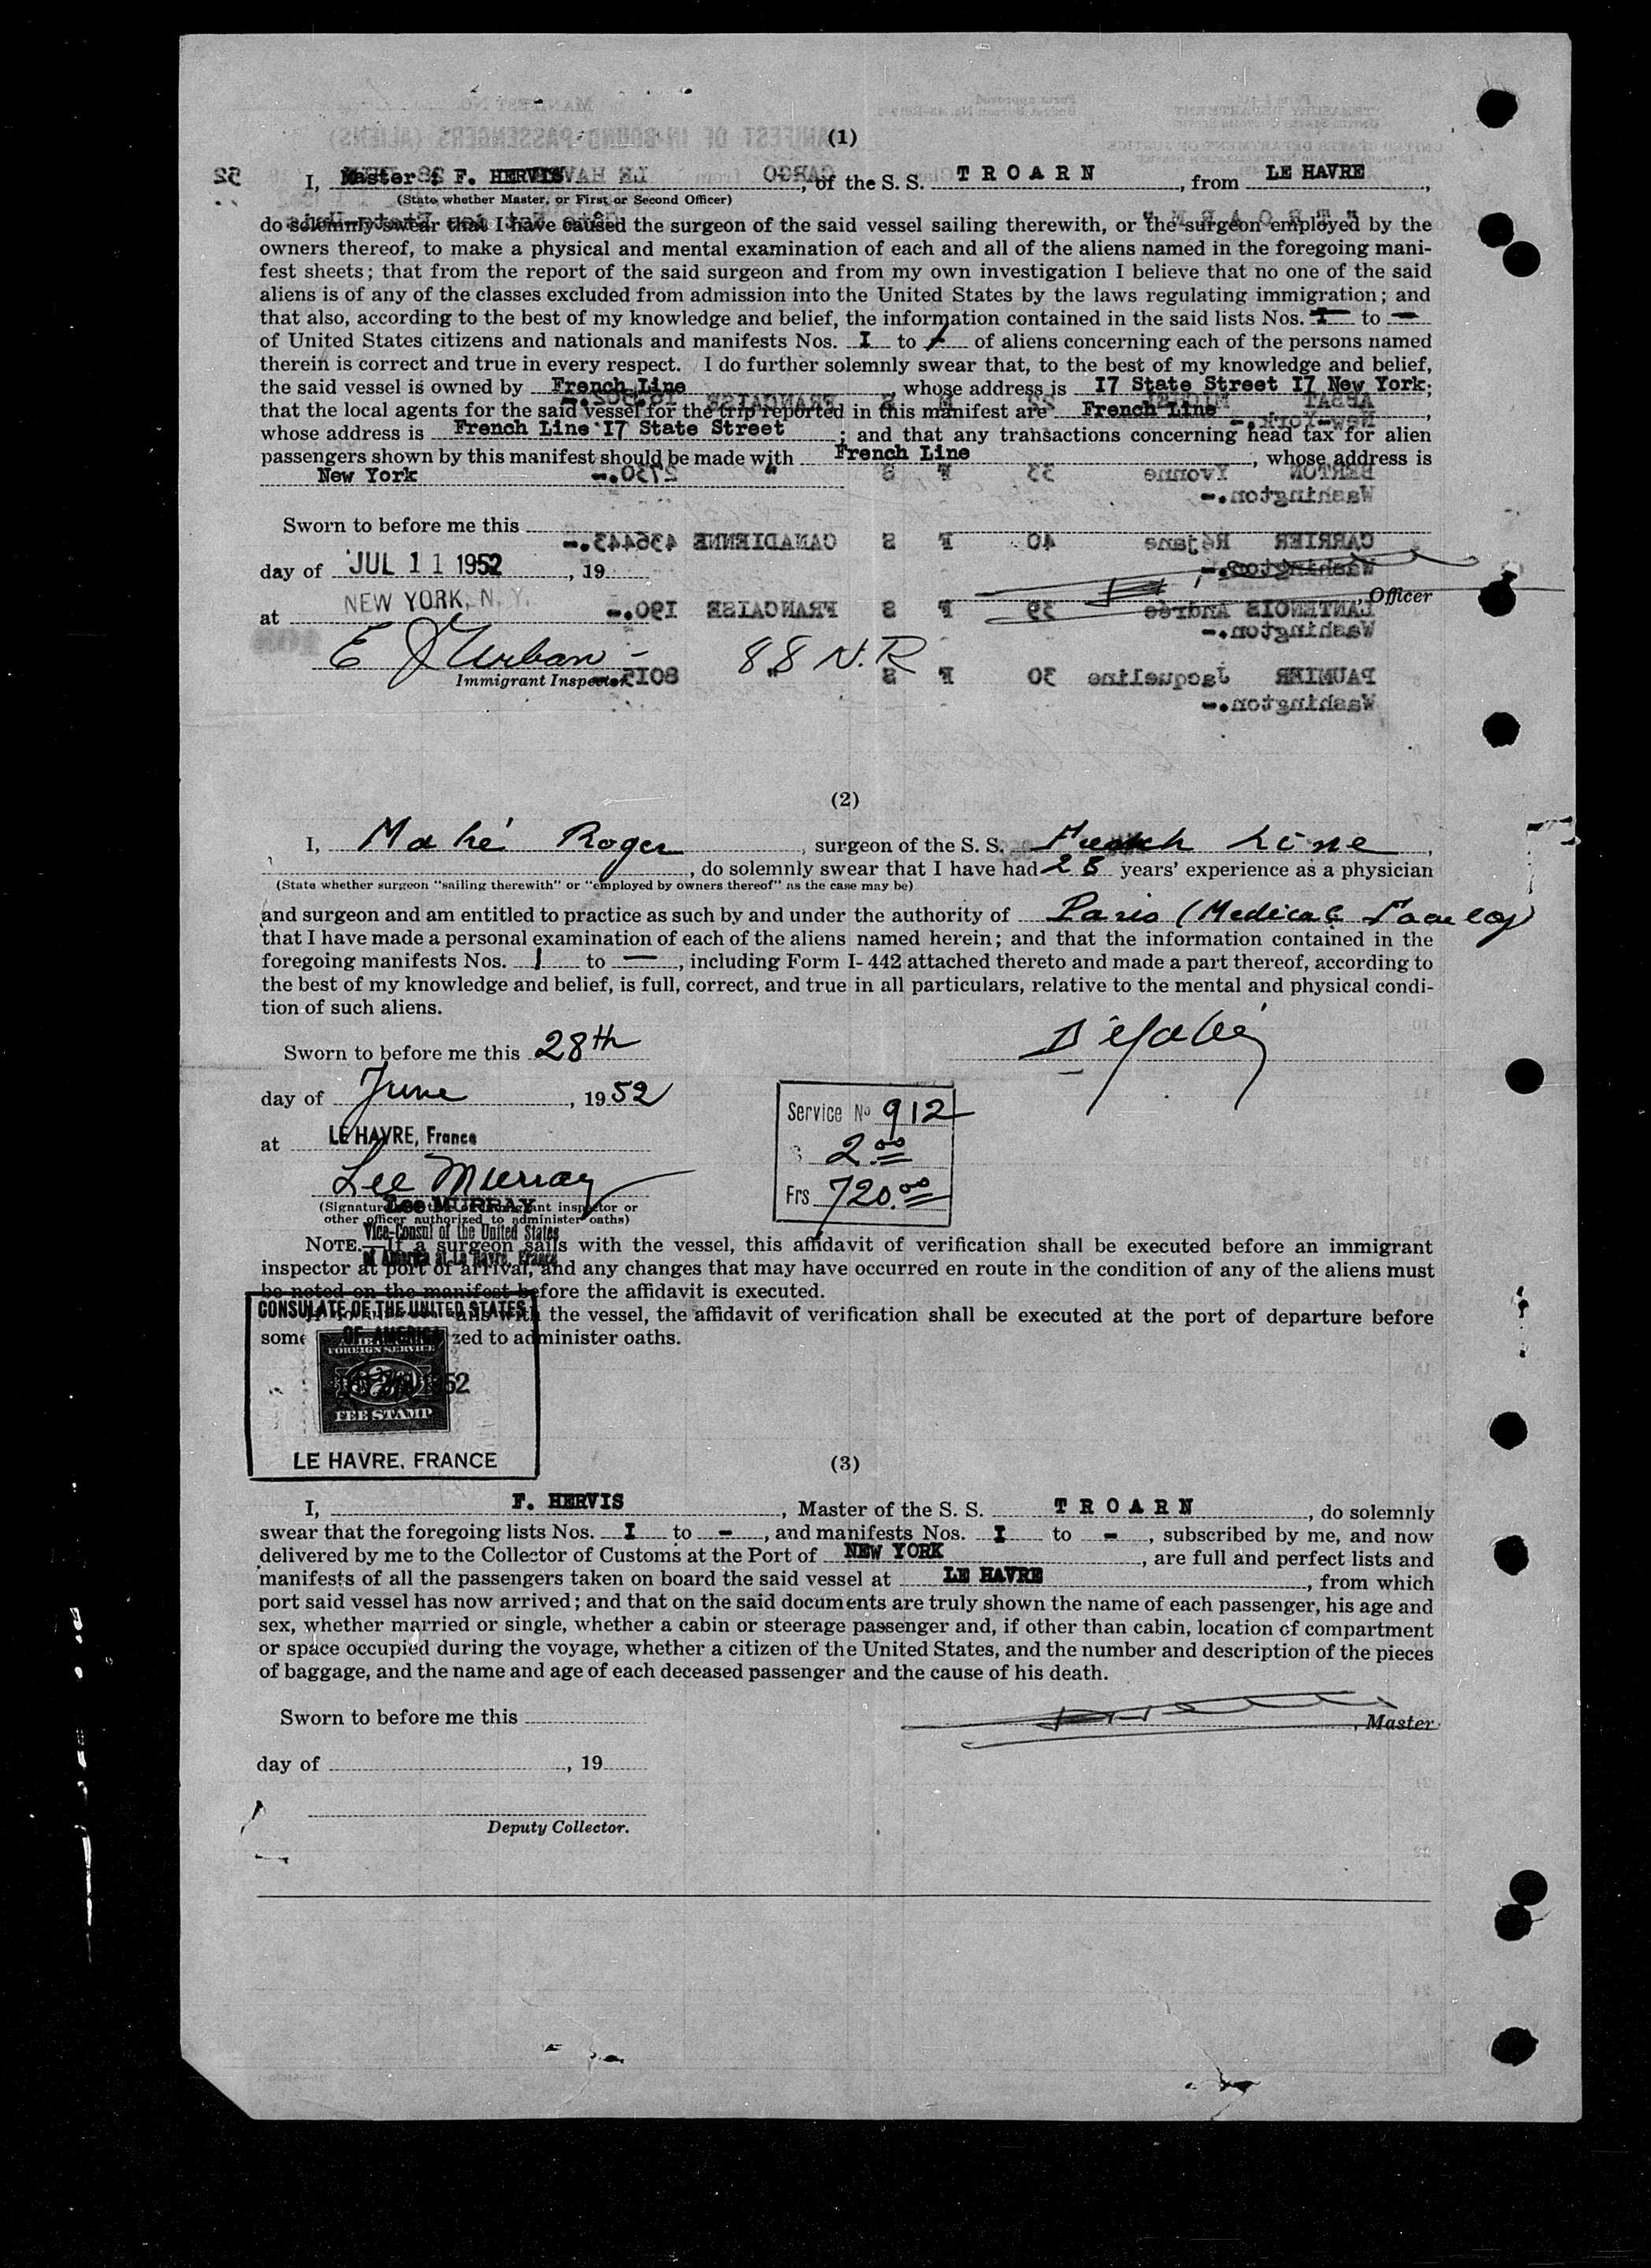 (1)
I, Master: F. HERVIS, of the S. S. TROARN, from LE HAVRE,
(State whether Master, or First or Second Officer)
do solemnly swear that I have caused the surgeon of the said vessel sailing therewith, or the surgeon employed by the
owners thereof, to make a physical and mental examination of each and all of the aliens named in the foregoing mani-
fest sheets; that from the report of the said surgeon and from my own investigation I believe that no one of the said
aliens is of any of the classes excluded from admission into the United States by the laws regulating immigration; and
that also, according to the best of my knowledge and belief, the information contained in the said lists Nos. I to —
of United States citizens and nationals and manifests Nos. I to of aliens concerning each of the persons named
therein is correct and true in every respect. I do further solemnly swear that, to the best of my knowledge and belief,
the said vessel is owned by French Line, whose address is I7 State Street I7 New York;
that the local agents for the said vessel for the trip reported in this manifest are French Line,
whose address is French Line I7 State Street; and that any transactions concerning head tax for alien
passengers shown by this manifest should be made with French Line, whose address is
New York
Sworn to before me this
day of JUL 11 1952, 19
, Officer
at NEW YORK, N. Y.
E J Urban - 88 N.R
Immigrant Inspector.
(2)
I, Mahé Roger, surgeon of the S. S. French Line,
, do solemnly swear that I have had 28 years' experience as a physician
(State whether surgeon "sailing therewith" or "employed by owners thereof" as the case may be)
and surgeon and am entitled to practice as such by and under the authority of Paris (Medical Faculty)
that I have made a personal examination of each of the aliens named herein; and that the information contained in the
foregoing manifests Nos. 1 to —, including Form I-442 attached thereto and made a part thereof, according to
the best of my knowledge and belief, is full, correct, and true in all particulars, relative to the mental and physical condi-
tion of such aliens.
Sworn to before me this 28th
day of June, 1952
Service No 912
at LE HAVRE, France
$ 2.00
Lee Murray
Frs 720.00
Lee MURRAY
(Signature immigrant inspector or
other officer authorized to administer oaths)
Vice-Consul of the United States
of America at Le Havre, France
NOTE.—If a surgeon sails with the vessel, this affidavit of verification shall be executed before an immigrant
inspector at port of arrival, and any changes that may have occurred en route in the condition of any of the aliens must
be noted on the manifest before the affidavit is executed.
CONSULATE OF THE UNITED STATES
OF AMERICA
with the vessel, the affidavit of verification shall be executed at the port of departure before
some zed to administer oaths.
FOREIGN SERVICE
1952
FEE STAMP
LE HAVRE, FRANCE
(3)
I, F. HERVIS, Master of the S. S. TROARN, do solemnly
swear that the foregoing lists Nos. I to -, and manifests Nos. I to -, subscribed by me, and now
delivered by me to the Collector of Customs at the Port of NEW YORK, are full and perfect lists and
manifests of all the passengers taken on board the said vessel at LE HAVRE, from which
port said vessel has now arrived; and that on the said documents are truly shown the name of each passenger, his age and
sex, whether married or single, whether a cabin or steerage passenger and, if other than cabin, location of compartment
or space occupied during the voyage, whether a citizen of the United States, and the number and description of the pieces
of baggage, and the name and age of each deceased passenger and the cause of his death.
Sworn to before me this
, Master
day of , 19
Deputy Collector.